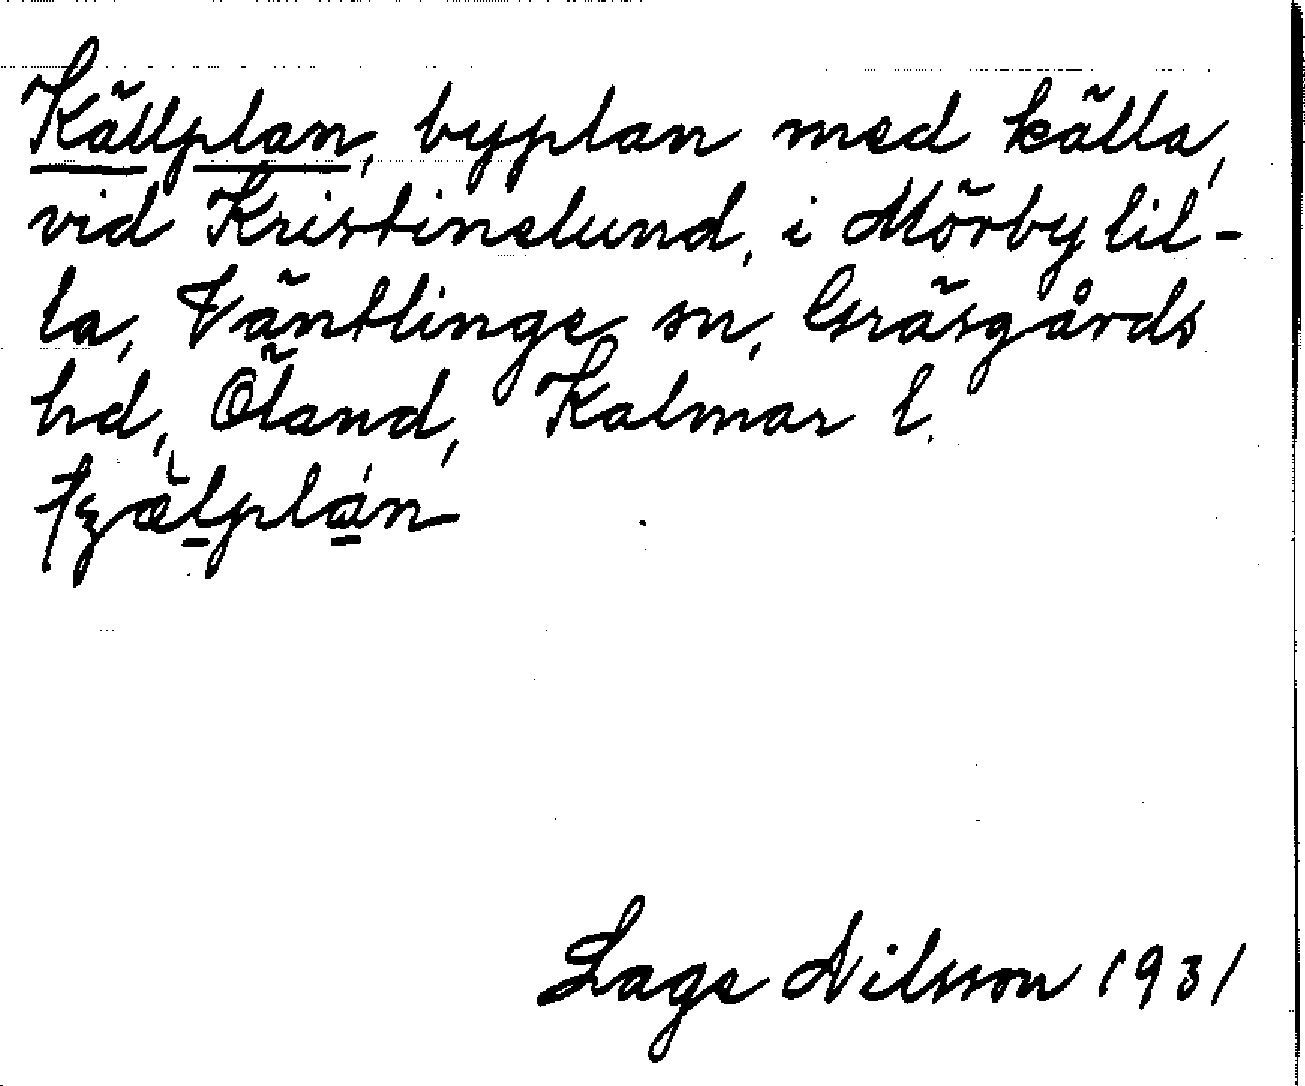 Källplan, byplan med källa,
vid Kristinelund, i Mörbylil-
la, Väntlinge sn, Gräsgårds
hd, Öland, Kalmar l.
Lage Nilsson 1931